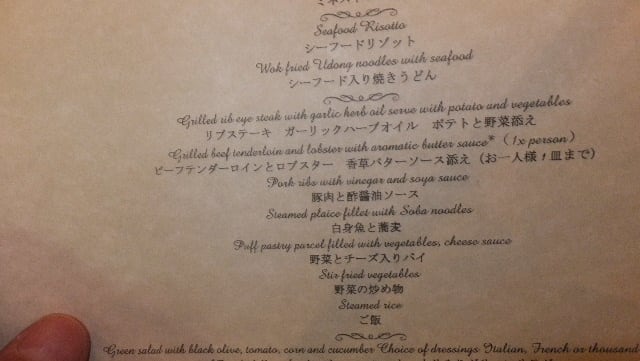 ミネスト
Seafood Risotto
シーフードリゾット
Wok fried Udong noodles with seafood
シーフード入り焼きうどん
Grilled rib eye steak with garlic herb oil serve with potato and vegetables
リブステーキ ガーリックハーブオイル ポテトと野菜添え
Grilled beef tenderloin and lobster with aromatic butter sauce* (1x person)
ビーフテンダーロインとロブスター 香草バターソース添え (お一人様1皿まで)
Pork ribs with vinegar and soya sauce
豚肉と酢醤油ソース
Steamed plaice fillet with Soba noodles
白身魚と蕎麦
Puff pastry parcel filled with vegetables, cheese sauce
野菜とチーズ入りパイ
Stir fried vegetables
野菜の炒め物
Steamed rice
ご飯
Green salad with black olive, tomato, corn and cucumber Choice of dressings Italian, French or thousand